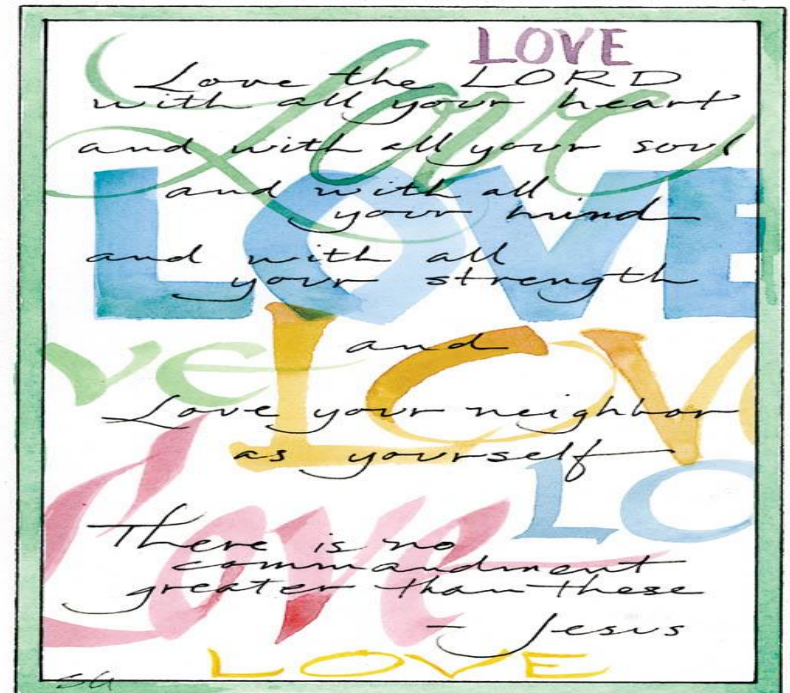 LOVE
Love
Love the LORD
with all your heart
and with all your soul
LOVE
and with all
your mind
and with all
your strength
and
VE LOV
Love your neighbor
as yourself
LO
Love
There is no
commandment
greater than these
- Jesus
LOVE